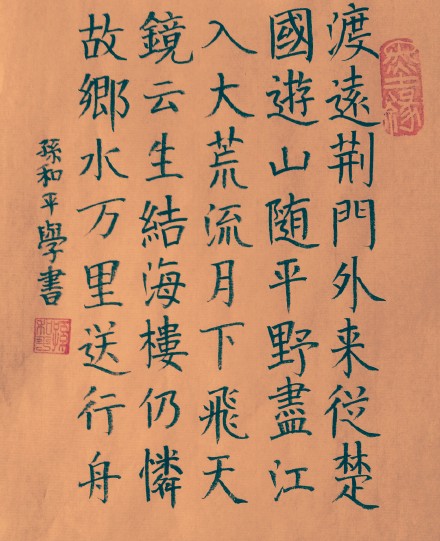 渡遠荆門外来従楚
國遊山随平野盡江
入大荒流月下飛天
鏡云生結海樓仍憐
故鄉水万里送行舟
孫和平學書